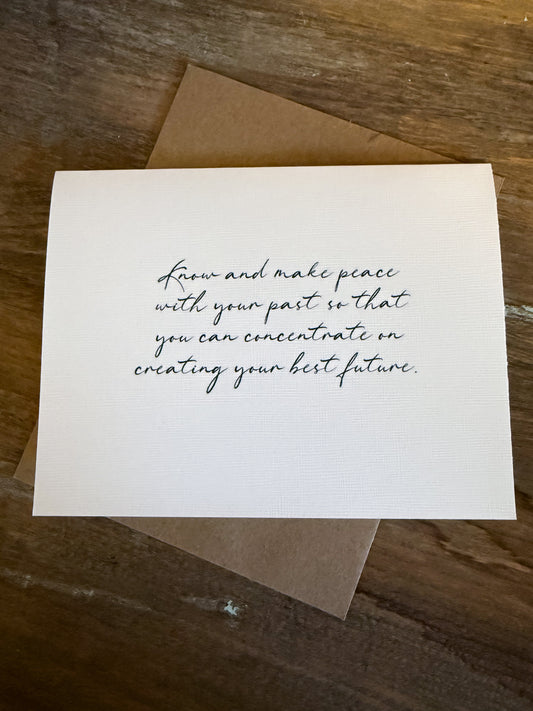 Know and make peace
with your past so that
you can concentrate on
creating your best future.